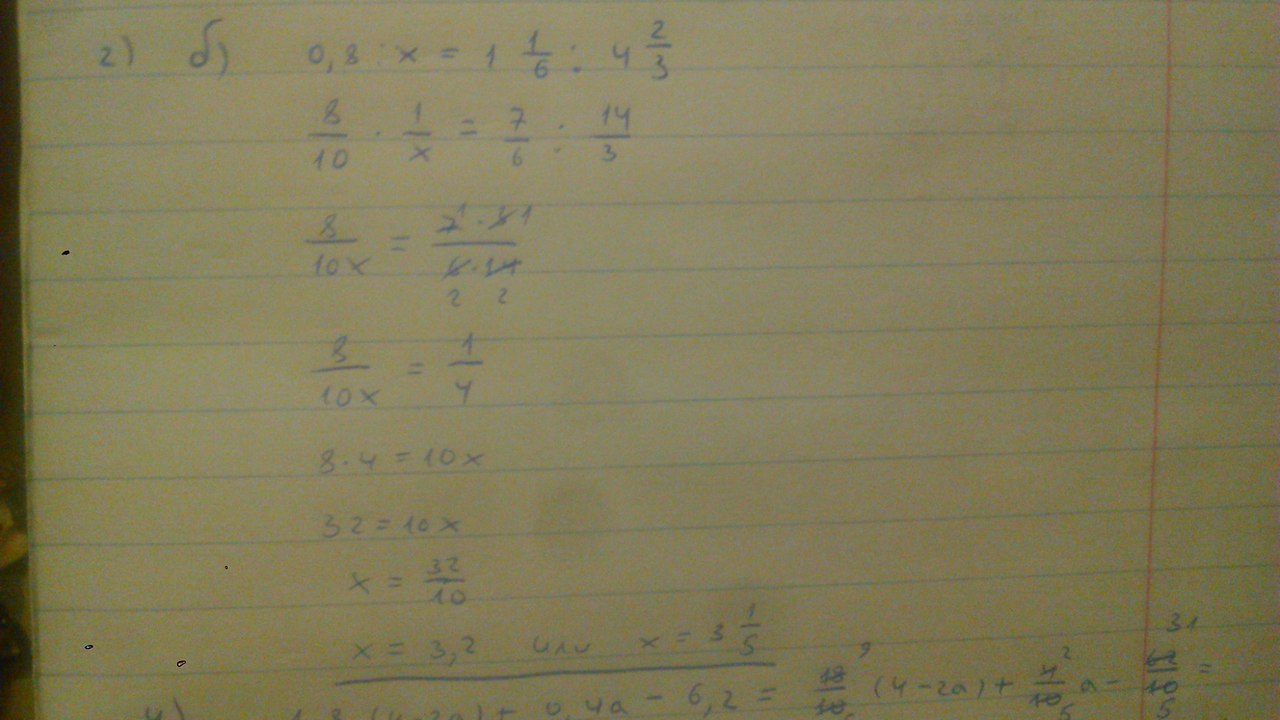 2) б) 0,8 : x = 1 1/6 : 4 2/3
8/10 · 1/x = 7/6 : 14/3
8/10x = 7 1 · 3 1 / 6 2 · 14 2
8/10x = 1/4
8·4 = 10x
32 = 10x
x = 32/10
x = 3,2 или x = 3 1/5
0,4a - 6,2 = 18/10 9 (4-2a) + 4/10 2/5 a - 62/10 31/5 =